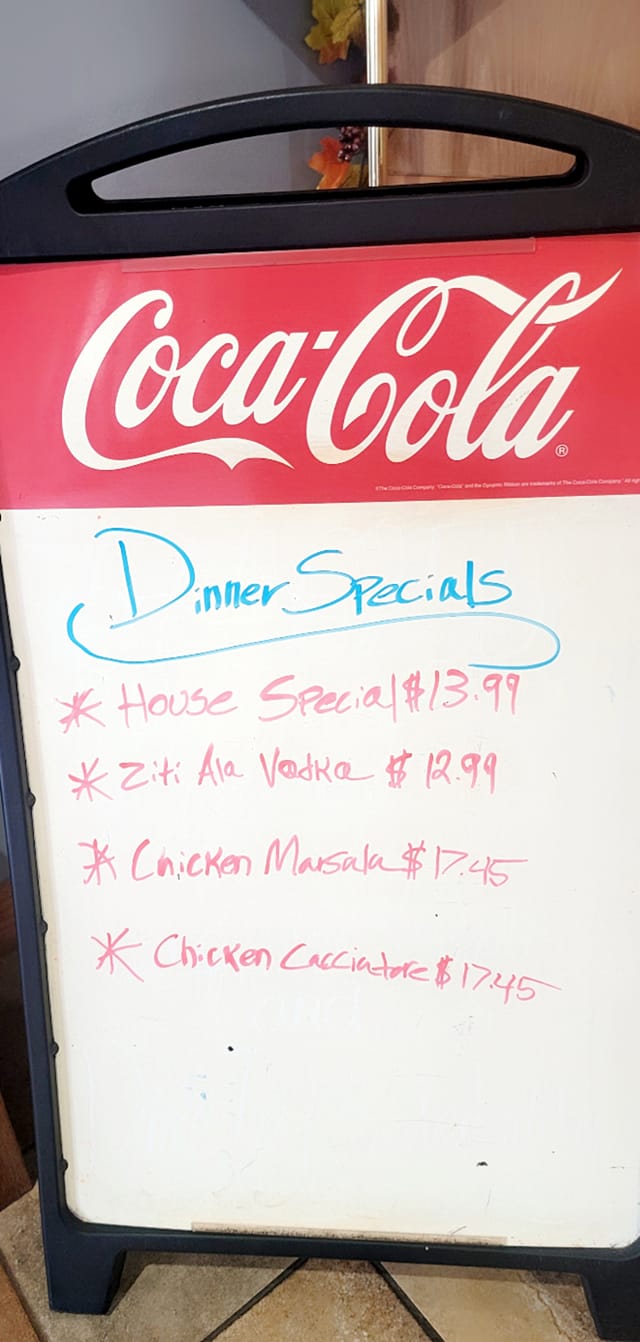 Coca-Cola®
©The Coca-Cola Company. "Coca-Cola" and the Dynamic Ribbon are trademarks of The Coca-Cola Company. All
Dinner Specials
* House Special $13.99
* Ziti Ala Vodka $ 12.99
* Chicken Marsala $17.45
* Chicken Cacciatore $17.45